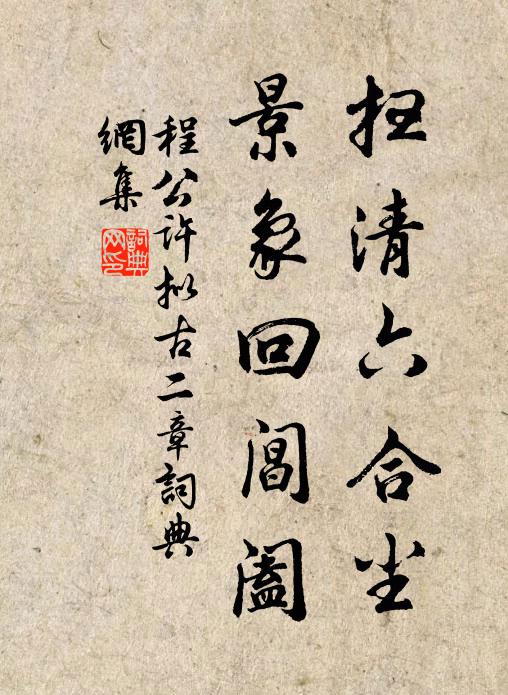 扫清六合尘
景象回阊阖
程公许拟古二章詞典
網集
詞典网印